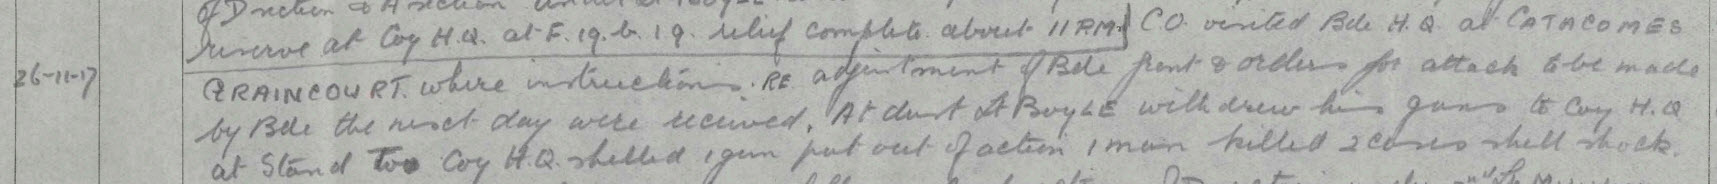 of D section & A section under Lt Boyle
reserve at Coy H.Q. at F.19.b.19. relief complete about 11 P.M. C.O. visited Bde H.Q. at CATACOMES
26-11-17 GRAINCOURT. where instructions RE adjustment of Bde front & orders for attack to be made
by Bde the next day were received. At dusk Lt BOYLE withdrew his guns to Coy H.Q
at Stand Too Coy H.Q. shelled 1 gun put out of action 1 man killed 2 cases shell shock.